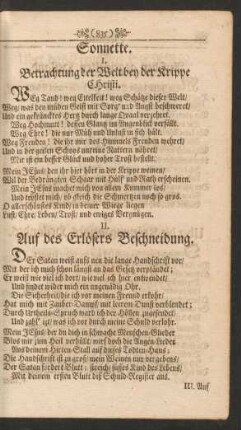 (83)
Sonnette.
I.
Betrachtung der Welt bey der Krippe
Christi.
Weg Tand! weg Eitelkeit! weg Schätze dieser Welt/
Weg/ was den müden Geist mit Sorg' und Angst beschweret/
Und ein gekräncktes Hertz durch lange Quaal verzehret.
Weg Hochmuth! dessen Glantz im Augenblick verfällt.
Weg Ehre! die nur Müh und Unlust in sich hält.
Weg Freuden! die ihr mir des Himmels Freuden wehret/
Und in der geilen Schooß ... Nattern nähret/
Mir ist ein besser Glück und hoher Trost bestellt.
Mein JEsus/ den ihr hier hört in der Krippe weinen/
Will der Bedrängten Schaar mit Hülff und Rath erscheinen.
Mein JEsus machet mich von allem Kummer los/
Und tröstet mich/ ob gleich die Schmertzen noch so groß.
Ich allerschönstes Kind/ in deiner Wiege liegen
Lust/ Ehre/ Leben/ Trost/ und ewiges Vergnügen.
II.
Auf des Erlösers Beschneidung.
Der Satan weist aufs neu die lange Handschrift vor/
Mit der ich mich schon längst an das Gesetz verpfändet;
Er weiß wie viel ich dort/ wie viel ich hier entwendet/
Und findet wider mich ein ungedultig Ohr.
Die Sicherheit/ die ich vor meinen Freund erkohr/
Hat mich mit Zauber-Dampf/ mit leerem Dunst verblendet;
Durch Urtheil und Spruch ward ich der Höllen zugesendet/
Und zahl' itzt/ was ich vor durch meine Schuld verlohr.
Mein JEsus/ der du dich in schwache Menschen-Glieder
Blos mir zum Heil verhüllt/ wirf doch die Augen-Lieder
Aus deinem Hütten-Stall auf dieses Todten-Haus;
Die Handschrift ist zu groß/ mein Weinen nur vergebens/
Der Satan fordert Blut; streich/ süsses Kind des Lebens/
Mit deinem ersten Blut diß Schuld-Register aus.
III. Auf